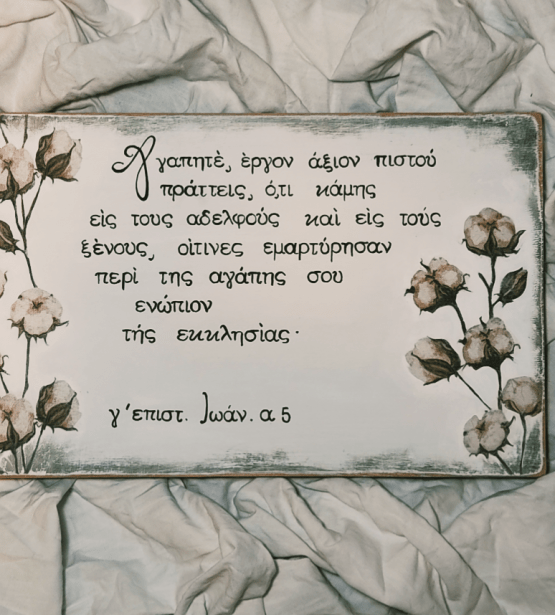 Αγαπητὲ, ὲργον άξιον πιστού
πράττεις, ό,τι κάμης
εὶς τους αδελφούς καὶ εὶς τούς
ξὲνους, οὶτινες εμαρτύρησαν
περὶ της αγάπης σου
ενώπιον
τής εκκλησὶας·
γ 'επιστ. Ιωάν. α 5